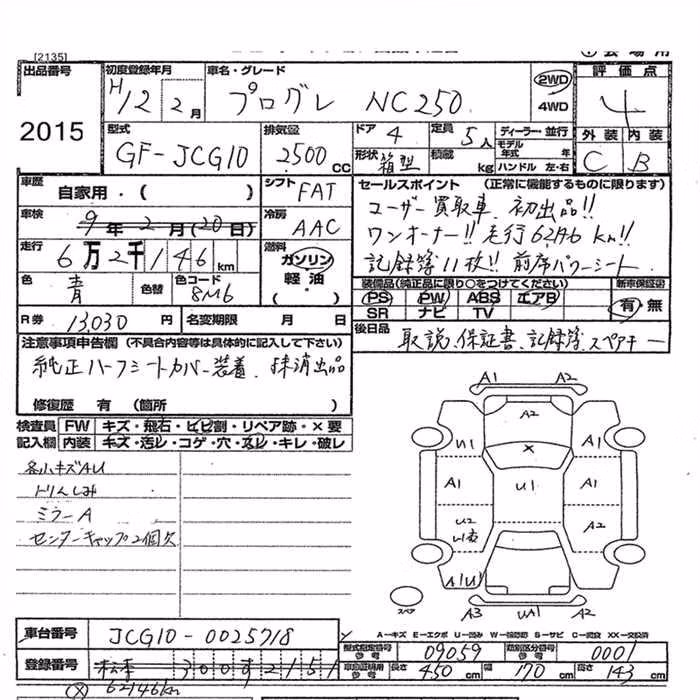 [2135]
出品番号 初度登録年月 車名・グレード 2WD 4WD 評価点
2015 H12 2月 プログレ NC250 4
型式 排気量 ドア 4 定員 5人 ディーラー・並行 外装 内装
GF-JCG10 2500CC 形状 箱型 積載 kg モデル年式 年 ハンドル 左・右 C B
車歴 自家用・( ) シフト FAT セールスポイント (正常に機能するものに限ります)
車検 9年2月(20日) 冷房 AAC ユーザー買取車 初出品!!
走行 6万2千146km 燃料 ガソリン 軽油 ワンオーナー!! 走行62146km!!
記録簿11枚!! 前席パワーシート
色 青 色替 色コード 8M6 装備品(純正品に限り○をつけてください) 新車保証書
PS PW ABS エアB 有・無
SR ナビ TV
R券 13,030円 名変期限 月 日 後日品
取説、保証書、記録簿、スペアキー
注意事項申告欄(不具合内容等は具体的に記入して下さい)
純正ハーフシートカバー装着、抹消出品
修復歴 有 (箇所
検査員 FW キズ・飛石・ヒビ割・リペア跡・×要
記入欄 内装 キズ・汚レ・コゲ・穴・スレ・キレ・破レ
各小キズAU
トリムしみ
ミラーA
センターキャップ2個欠
A1 A2
A2
U1 A1
×
A1 U1 A1
U2 A2
A1U1
スペア A3 UA1 A2
A-キズ E-エクボ U-凹み W-補修跡 S-サビ C-腐食 XX-交換済
車台番号 JCG10-0025718 型式指定番号 参考 09059 類別区分番号 参考 0001
登録番号 松本 300す2151 車庫証明用 参考 長さ 450cm 幅 170cm 高さ 143cm
62146km